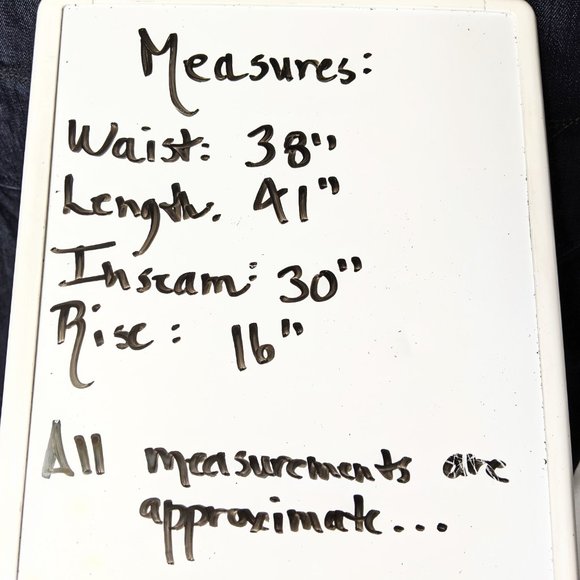 Measures:
Waist: 38"
Length. 41"
Inseam: 30"
Rise: 16"
All measurements are
approximate...